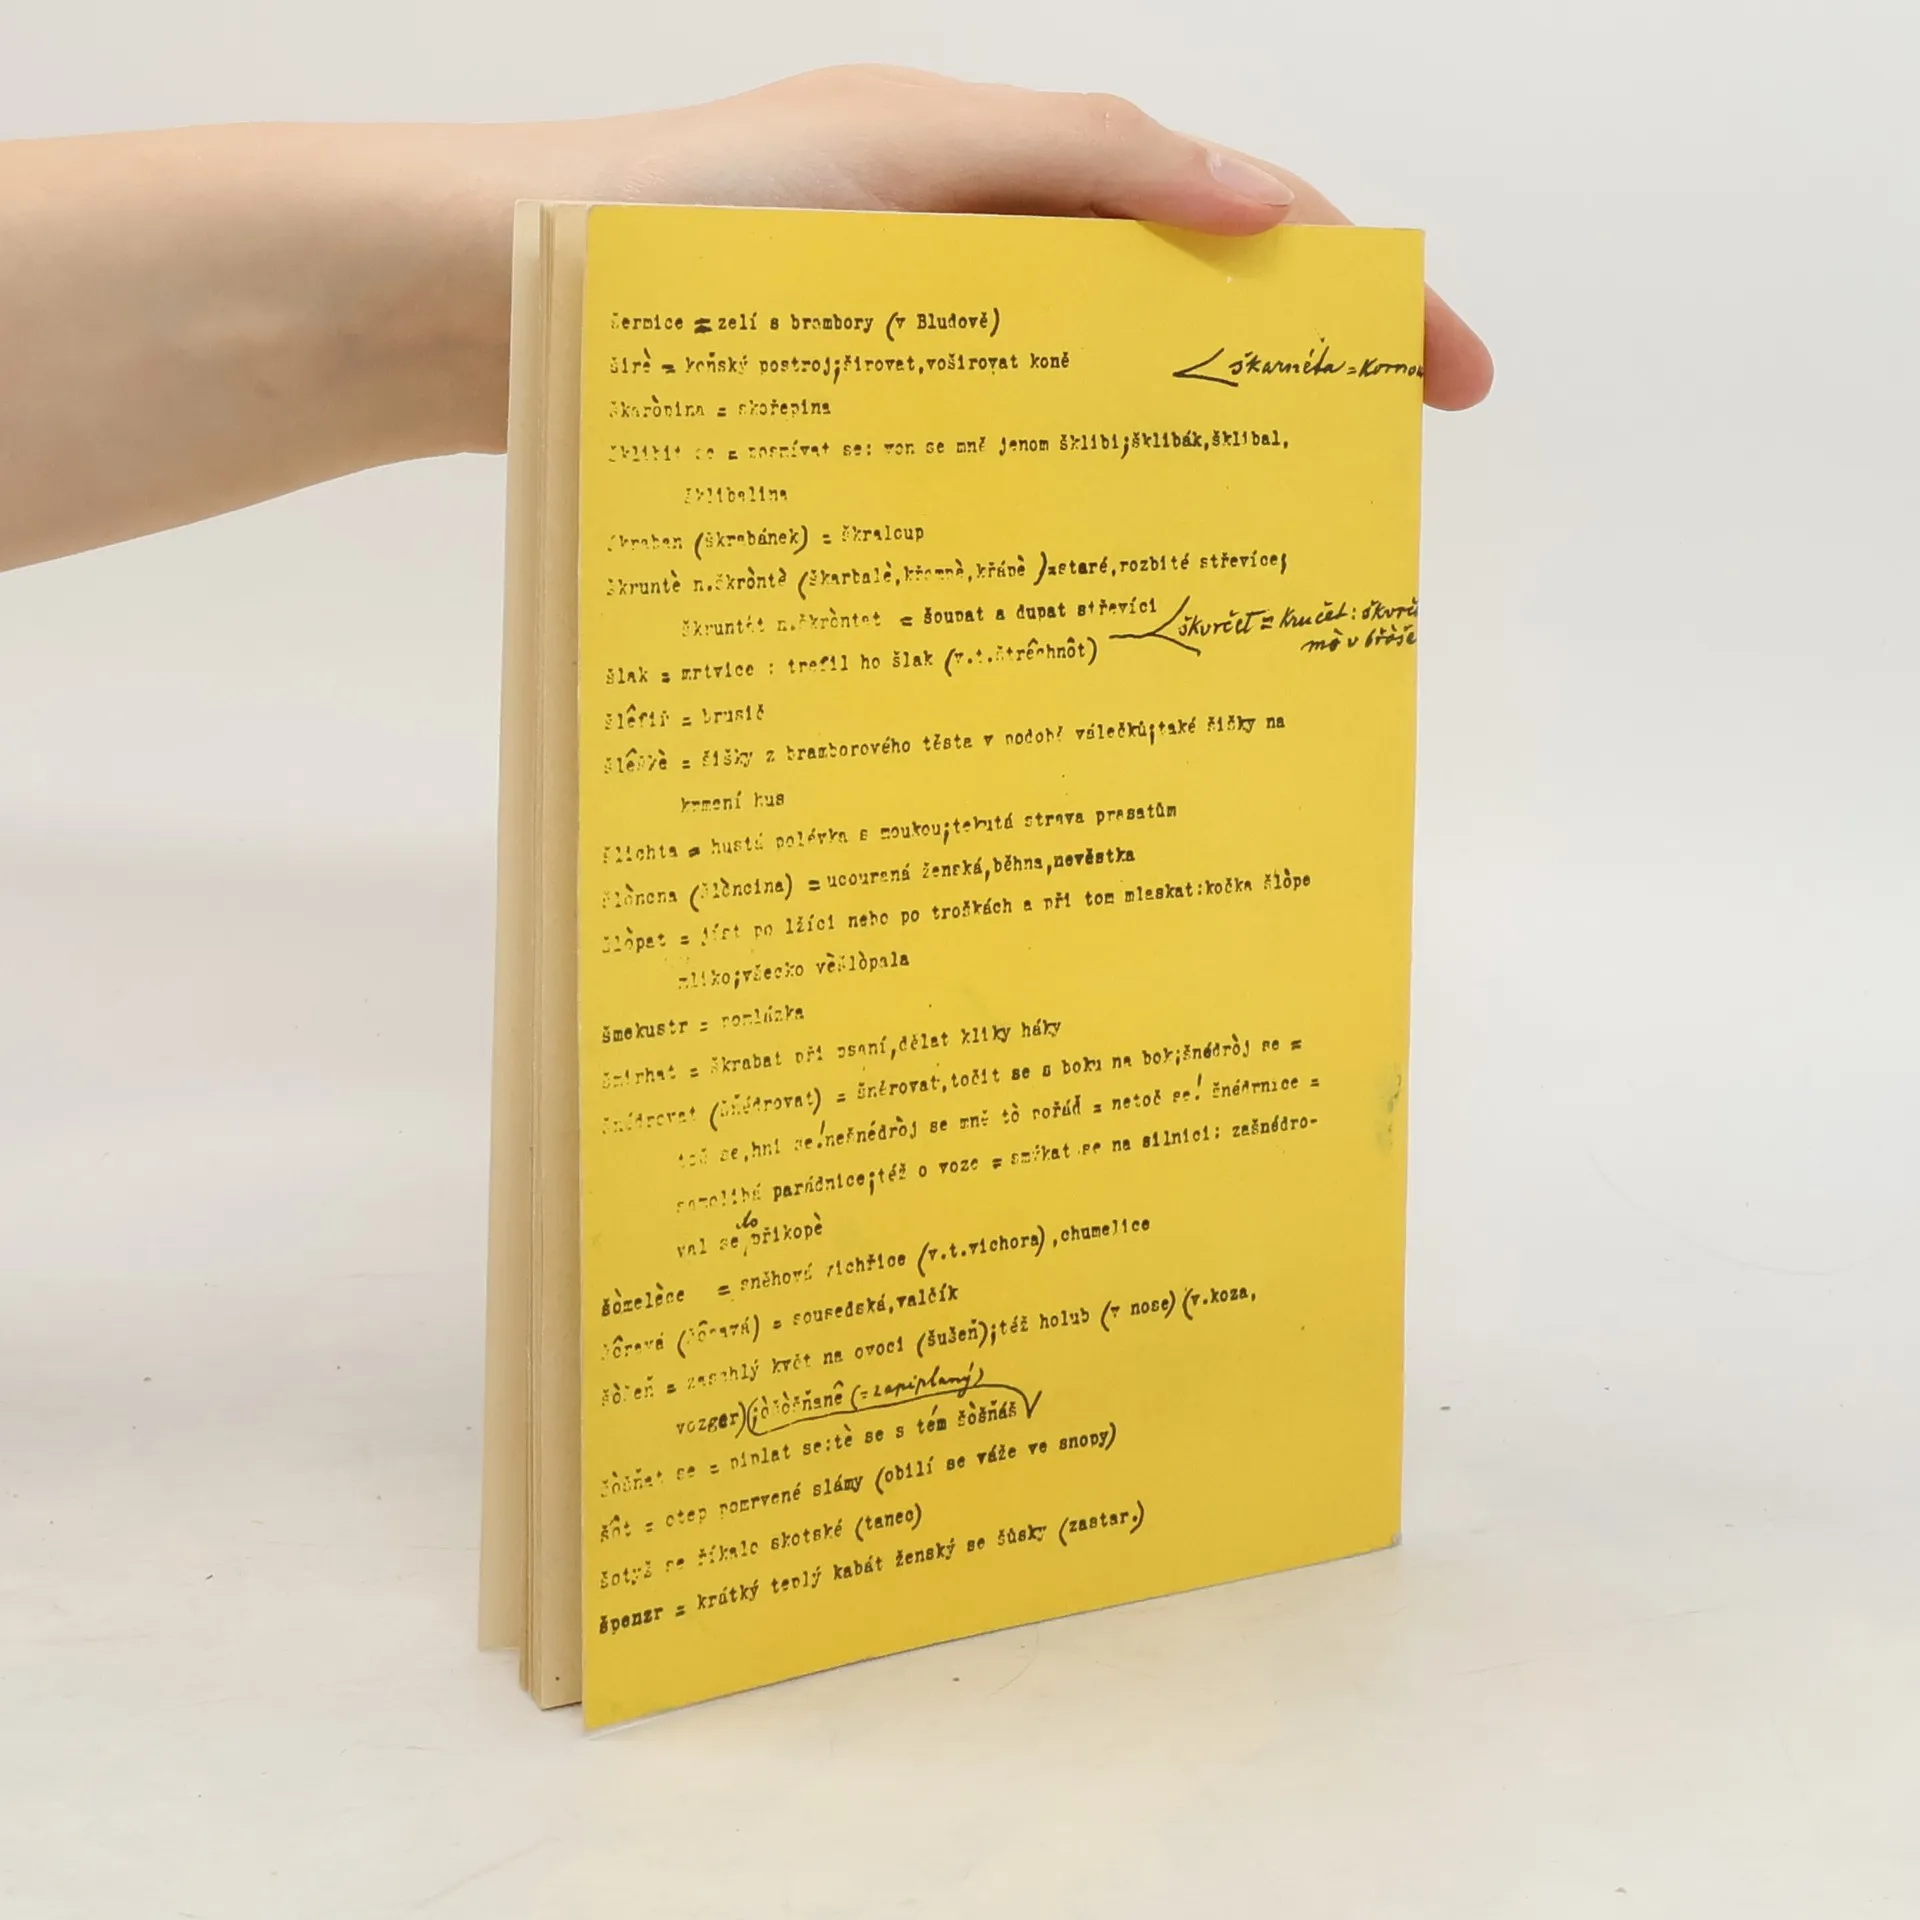 šermice = zelí s brambory (v Bludově)
širè = koňský postroj;širovat,voširovat koně
škarnéťa = korno
škaròpina = skořepina
šklibit se = posmívat se: von se mně jenom šklibi;šklibák,šklibal,
šklibalina
škraban (škrabánek) = škraloup
škruntè n.škròntè (škarbalè,křampè,křápè)=staré,rozbité střevíce;
škruntát n.škròntat = šoupat a dupat střevíci
škvrčet = kručet: škvrč
mò v břòše
šlak = mrtvice : trefil ho šlak (v.t.štrêchnôt)
šlêfiř = brusič
šlêškè = šišky z bramborového těsta v podobě válečků;také šičky na
krmení hus
šlichta = hustá polévka s moukou;tekutá strava prasatům
šlòncna (šlòncina) = ucouraná ženská,běhna,nevěstka
šlòpat = jíst po lžíci nebo po troškách a při tom mlaskat:kočka šlòpe
mliko;všecko vèšlòpala
šmekustr = pomlázka
šmirhat = škrabat při psaní,dělat kliky háky
šnédrovat (šňédrovat) = šněrovat,točit se s boku na bok;šnédròj se =
toč se,hni se!nešnédròj se mně tò pořáď = netoč se! šnédrnice =
samolibá parádnice;též o voze = smýkat se na silnici: zašnédro-
val se do příkopè
šòmelèce = sněhová vichřice (v.t.vichora),chumelice
šôravá = sousedská,valčík
šòšeň = zaschlý květ na ovoci (šušeň);též holub (v nose)(v.koza,
vozger);òšòšňanê (=zapiplaný)
šòšňat se = piplat se:tè se s tém šòšňáš
šôt = otep pomrvené slámy (obilí se váže ve snopy)
šotyš se říkalo skotské (tanec)
špenzr = krátký teplý kabát ženský se šůsky (zastar.)